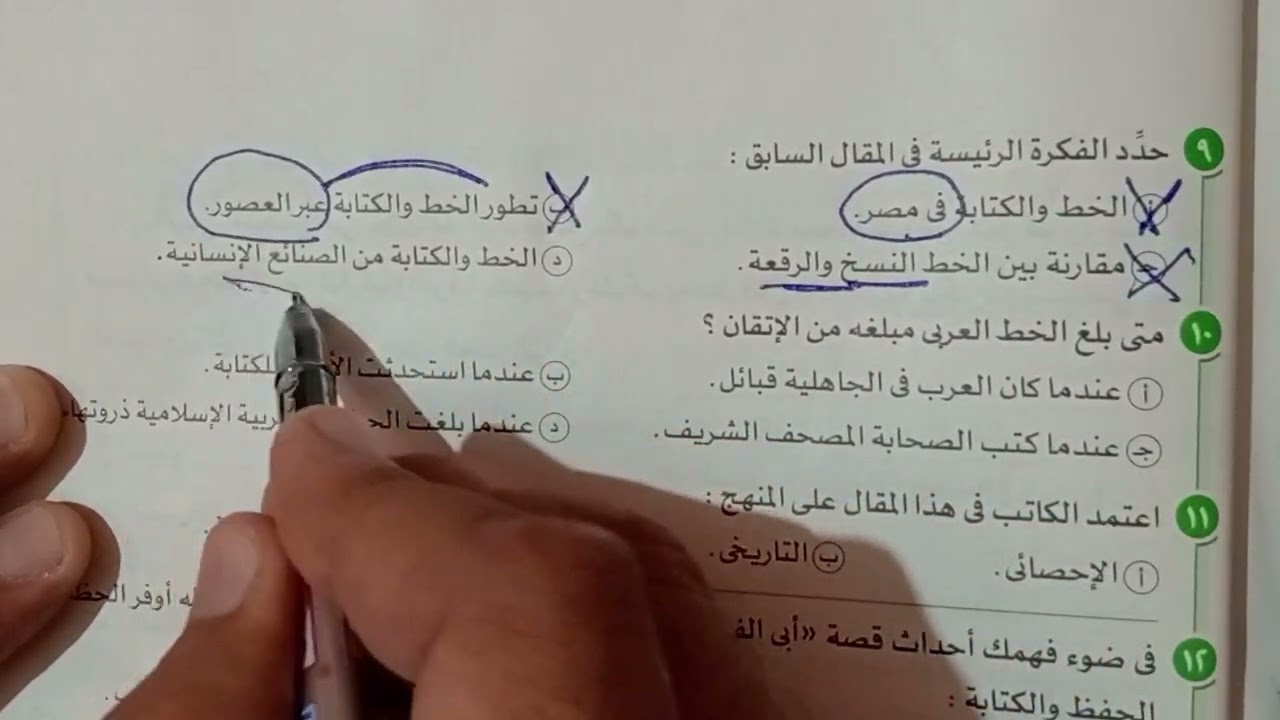 ٩ حدِّد الفكرة الرئيسة فى المقال السابق :
أ الخط والكتابة فى مصر. ب تطور الخط والكتابة عبر العصور.
جـ مقارنة بين الخط النسخ والرقعة. د الخط والكتابة من الصنائع الإنسانية.
١٠ متى بلغ الخط العربى مبلغه من الإتقان ؟
أ عندما كان العرب فى الجاهلية قبائل. ب عندما استحدثت للكتابة.
جـ عندما كتب الصحابة المصحف الشريف. د عندما بلغت الإسلامية ذروتها.
١١ اعتمد الكاتب فى هذا المقال على المنهج :
أ الإحصائى. ب التاريخى.
١٢ فى ضوء فهمك أحداث قصة «أبى
أوفر الحظ
الحفظ والكتابة :